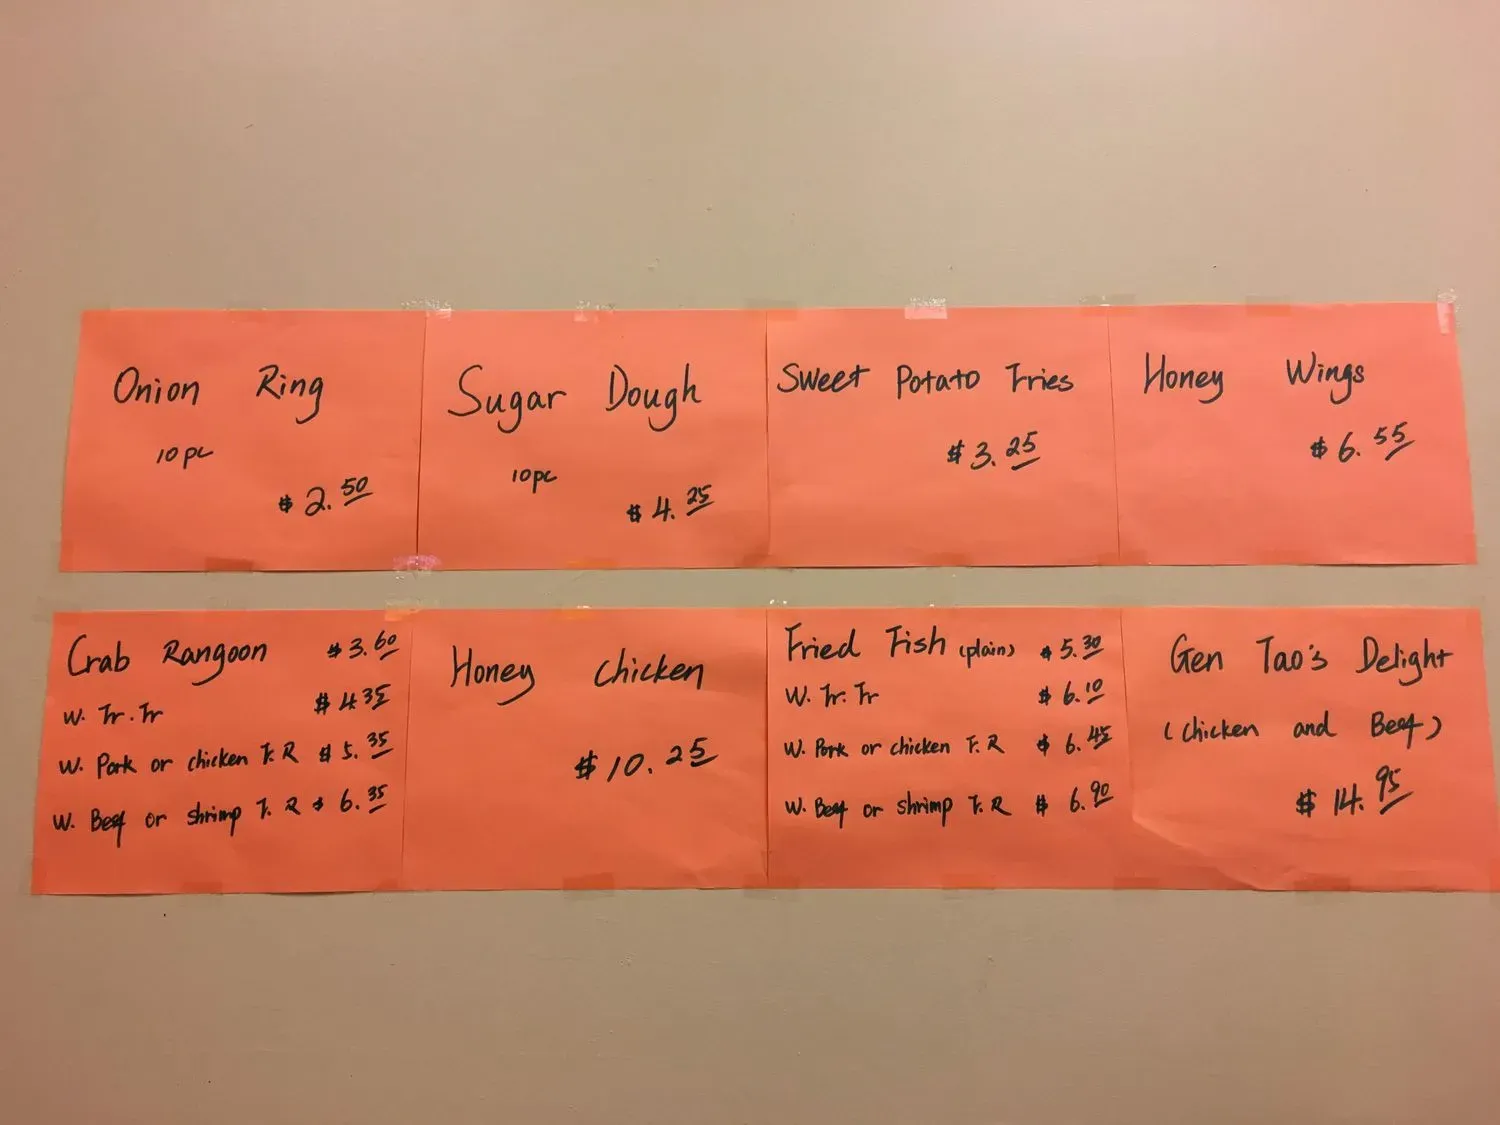 Onion Ring
10 pc
$2.50
Sugar Dough
10 pc
$4.25
Sweet Potato Fries
$3.25
Honey Wings
$6.55
Crab Rangoon $3.60
W. Fr. Fr $4.35
W. Pork or chicken F.R $5.35
W. Beef or shrimp F.R $6.35
Honey chicken
$10.25
Fried Fish (plain) $5.30
W. Fr. Fr $6.10
W. Pork or chicken F.R $6.45
W. Beef or shrimp F.R $6.90
Gen Tao's Delight
(chicken and Beef)
$14.95